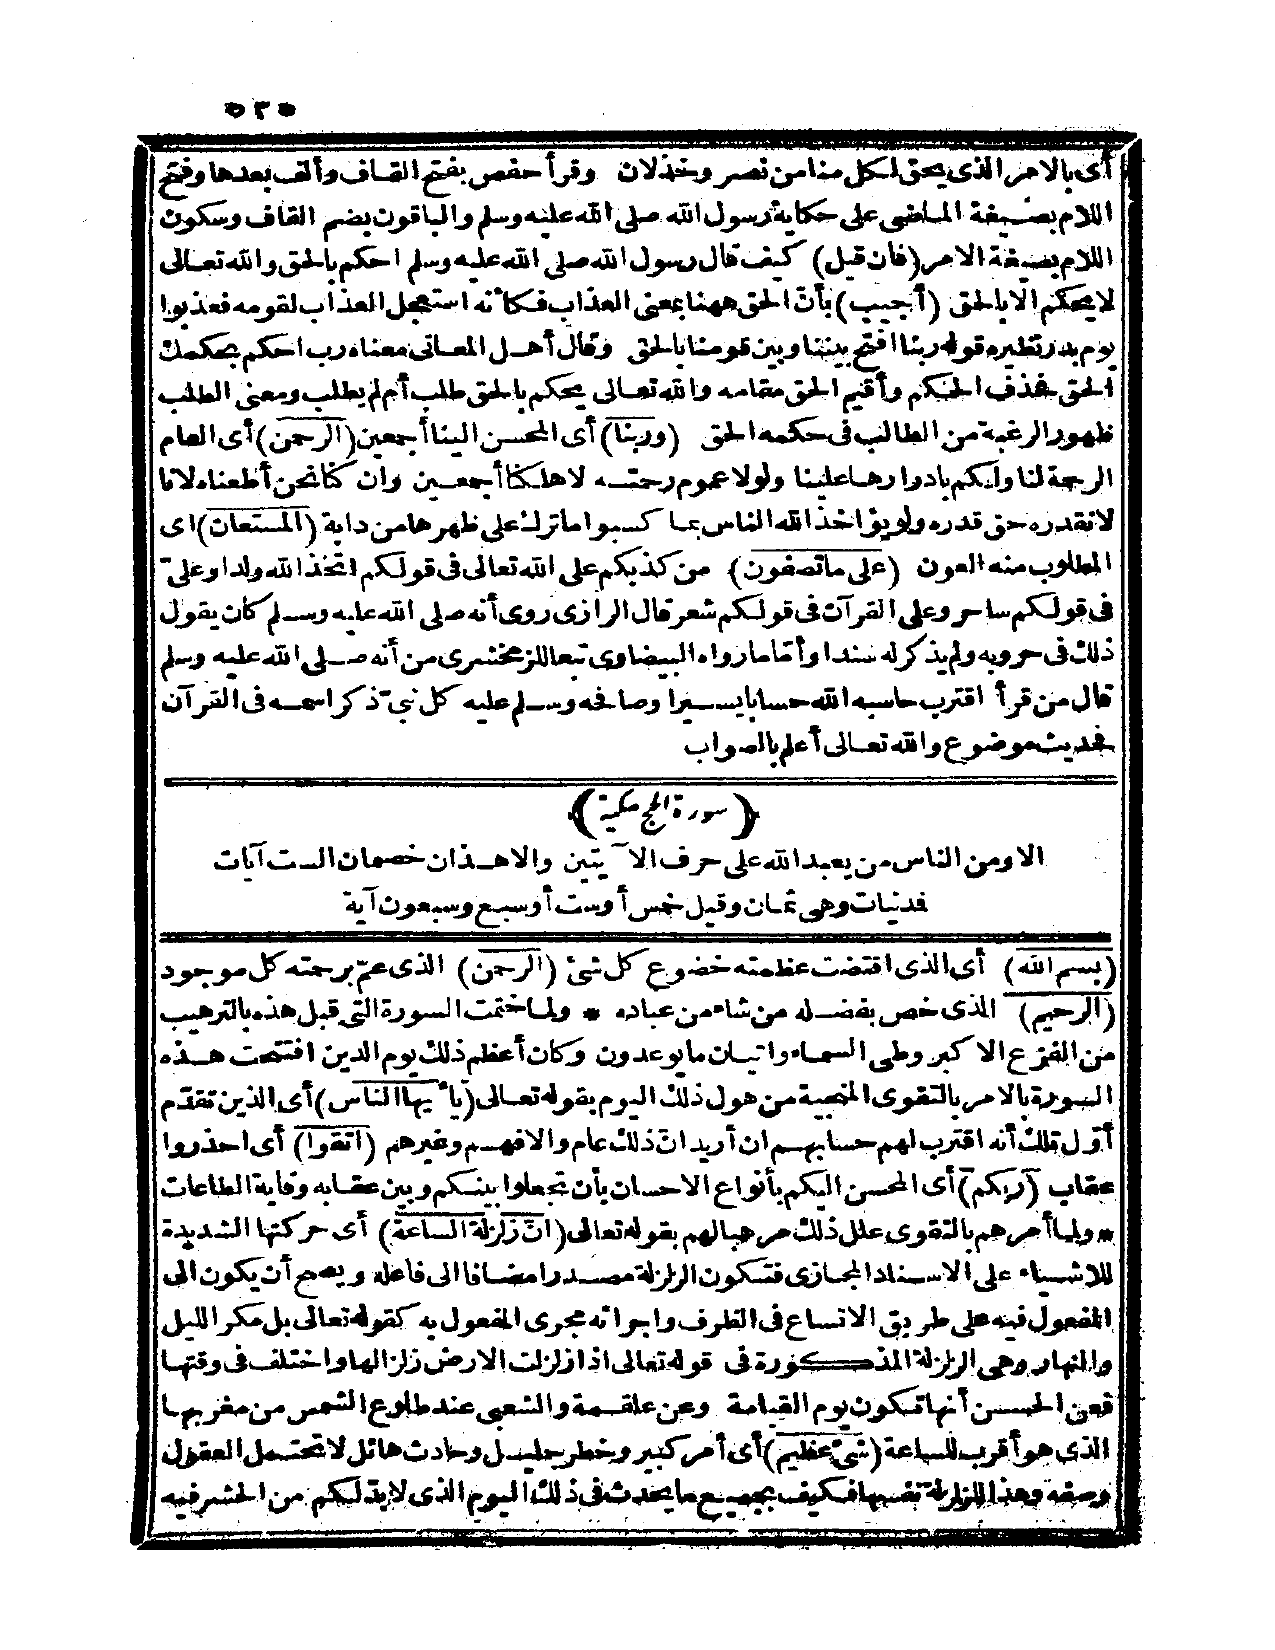 ٥٣٥
أى بالامر الذى يحق لكل منا من نصر وخذلان وقرأ حفص بفتح القاف وألف بعدها وفتح
اللام بصيغة الماضى على حكاية رسول الله صلى الله عليه وسلم والباقون بضم القاف وسكون
اللام بصيغة الامر (فان قيل) كيف قال رسول الله صلى الله عليه وسلم احكم بالحق والله تعالى
لا يحكم الا بالحق (أجيب) بأن الحق ههنا بمعنى العذاب فكأنه استعجل العذاب لقومه فعذبوا
يوم بدر نظيره قوله ربنا افتح بيننا وبين قومنا بالحق وقال أهل المعانى معناه رب احكم بحكمك
الحق فحذف الحكم وأقيم الحق مقامه والله تعالى يحكم بالحق طلب أم لم يطلب ومعنى الطلب
ظهور الرغبة من الطالب فى حكمه الحق (وربنا) أى المحسن الينا أجمعين (الرحمن) أى العام
الرحمة لنا ولكم بادرارها علينا ولولا عموم رحمته لاهلكنا أجمعين وان كنا نحن أطعناه لانا
لا نقدره حق قدره ولو يؤاخذ الله الناس بما كسبوا ما ترك على ظهرها من دابة (المستعان) اى
المطلوب منه العون (على ما تصفون) من كذبكم على الله تعالى فى قولكم اتخذ الله ولدا وعلىّ
فى قولكم ساحر وعلى القرآن فى قولكم شعر قال الرازى روى أنه صلى الله عليه وسلم كان يقول
ذلك فى حروبه ولم يذكر له سندا وأمّا ما رواه البيضاوى تبعا للزمخشرى من أنه صلى الله عليه وسلم
قال من قرأ اقترب حاسبه الله حسابا يسيرا وصافحه وسلم عليه كل نبىّ ذكر اسمه فى القرآن
فحديث موضوع والله تعالى أعلم بالصواب
(سورة الحج مكية)
الا ومن الناس من يعبد الله على حرف الآيتين والا هذان خصمان الست آيات
فدنيات وهى ثمان وقيل خمس أوست أوسبع وسبعون آية
(بسم الله) أى الذى اقتضت عظمته خضوع كل شئ (الرحمن) الذى عمّ برحمته كل موجود
(الرحيم) الذى خص بفضله من شاء من عباده * ولما ختمت السورة التى قبل هذه بالترهيب
من الفزع الاكبر وطى السماء واتيان ما يوعدون وكان أعظم ذلك يوم الدين افتتحت هذه
السورة بالامر بالتقوى المنجية من هول ذلك اليوم بقوله تعالى (يا أيها الناس) أى الذين تقدّم
أوّل تلك أنه اقترب لهم حسابهم ان أريد انّ ذلك عام والا فهم وغيرهم (اتقوا) أى احذروا
عقاب (ربكم) أى المحسن اليكم بأنواع الاحسان بأن تجعلوا بينكم وبين عقابه وقاية الطاعات
* ولما أمرهم بالتقوى علل ذلك مرهبا لهم بقوله تعالى (انّ زلزلة الساعة) أى حركتها الشديدة
للاشياء على الاسناد المجازى فتكون الزلزلة مصدرا مضافا الى فاعله ويصح أن يكون الى
المفعول فيه على طريق الاتساع فى الظرف واجرائه مجرى المفعول به كقوله تعالى بل مكر الليل
والنهار وهى الزلزلة المذكورة فى قوله تعالى اذا زلزلت الارض زلزالها واختلف فى وقتها
فعن الحسن أنها تكون يوم القيامة وعن علقمة والشعبى عند طلوع الشمس من مغربها
الذى هو أقرب للساعة (شئ عظيم) أى أمر كبير وخطر جليل وحادث هائل لا تحتمل العقول
وصفه وهذا للزلزلة نفسها فكيف بجميع ما يحدث فى ذلك اليوم الذى لا بدّ لكم من الحشر فيه